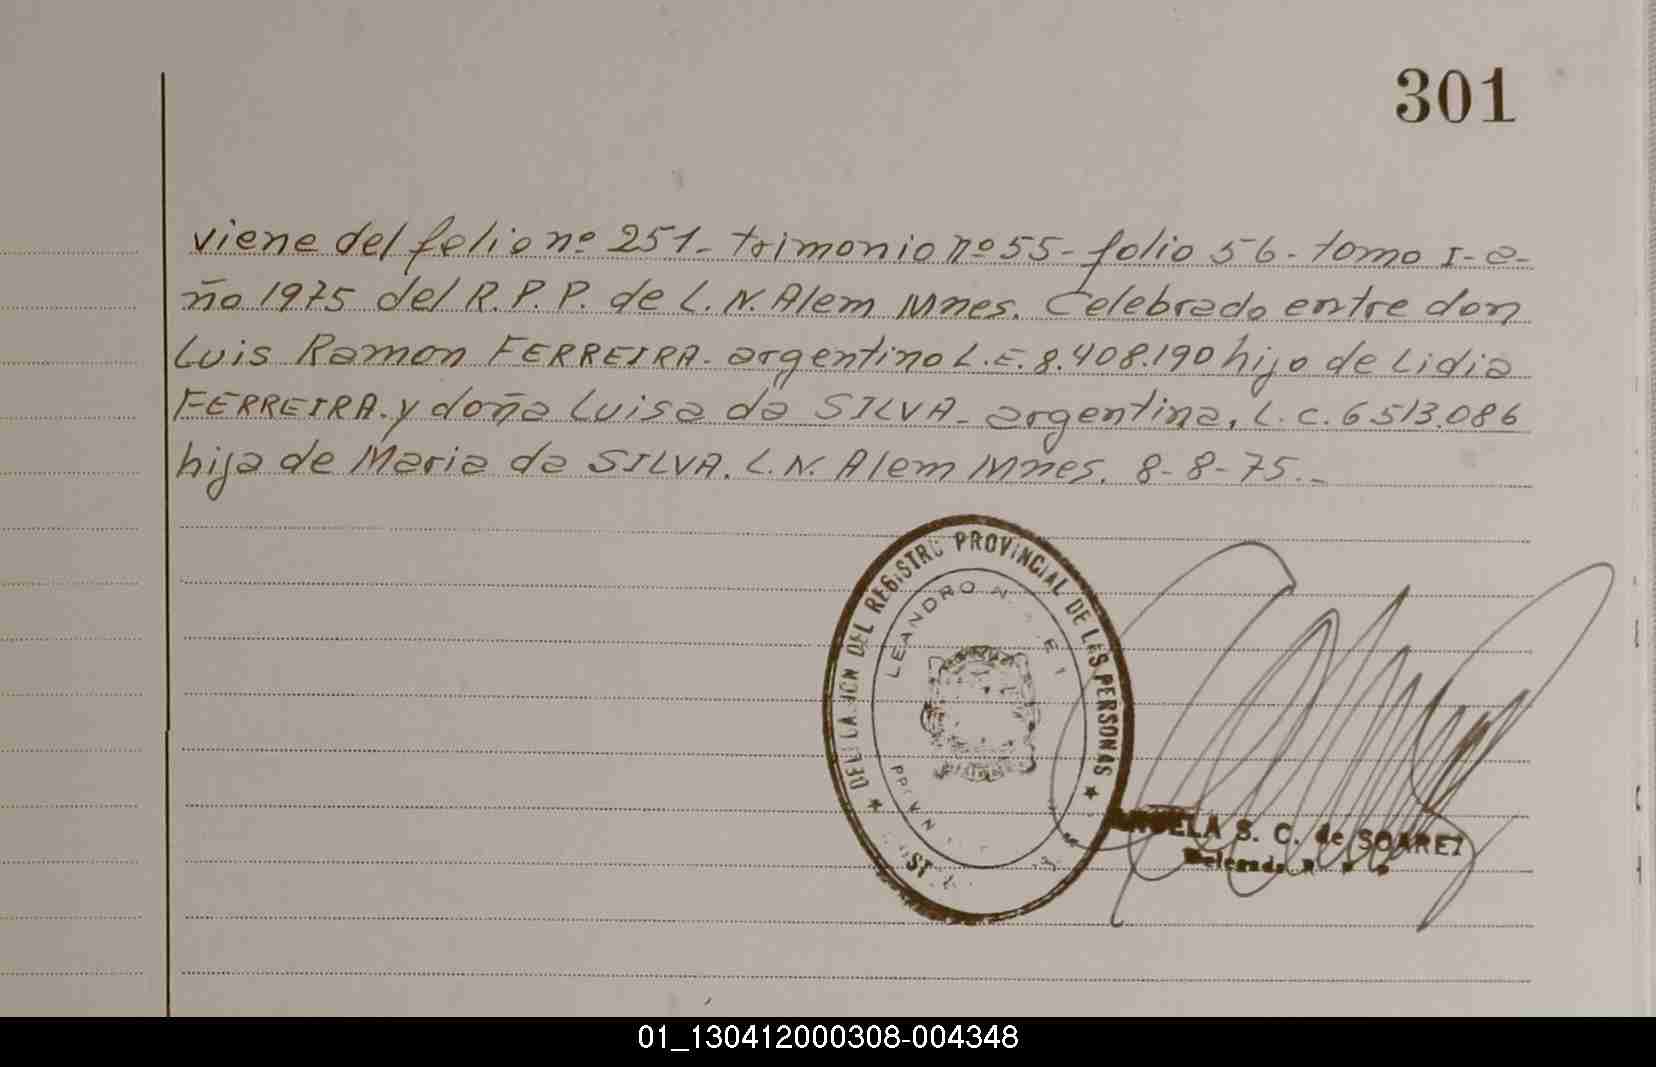 301
viene del felio nº 251- trimonio nº 55- folio 56- tomo I- a-
ño 1975 del R.P.P. de L.N. Alem Mnes. Celebrado entre don
Luis Ramon FERREIRA- argentino L.E. 8.408.190 hijo de Lidia
FERREIRA. y doña Luisa da SILVA- argentina. L.C. 6513.086
hija de Maria da SILVA. L.N. Alem Mnes. 8-8-75.-
DEL REGISTRO PROVINCIAL DE LAS PERSONAS
LEANDRO N.
S. C. de SOAREZ
01_130412000308-004348